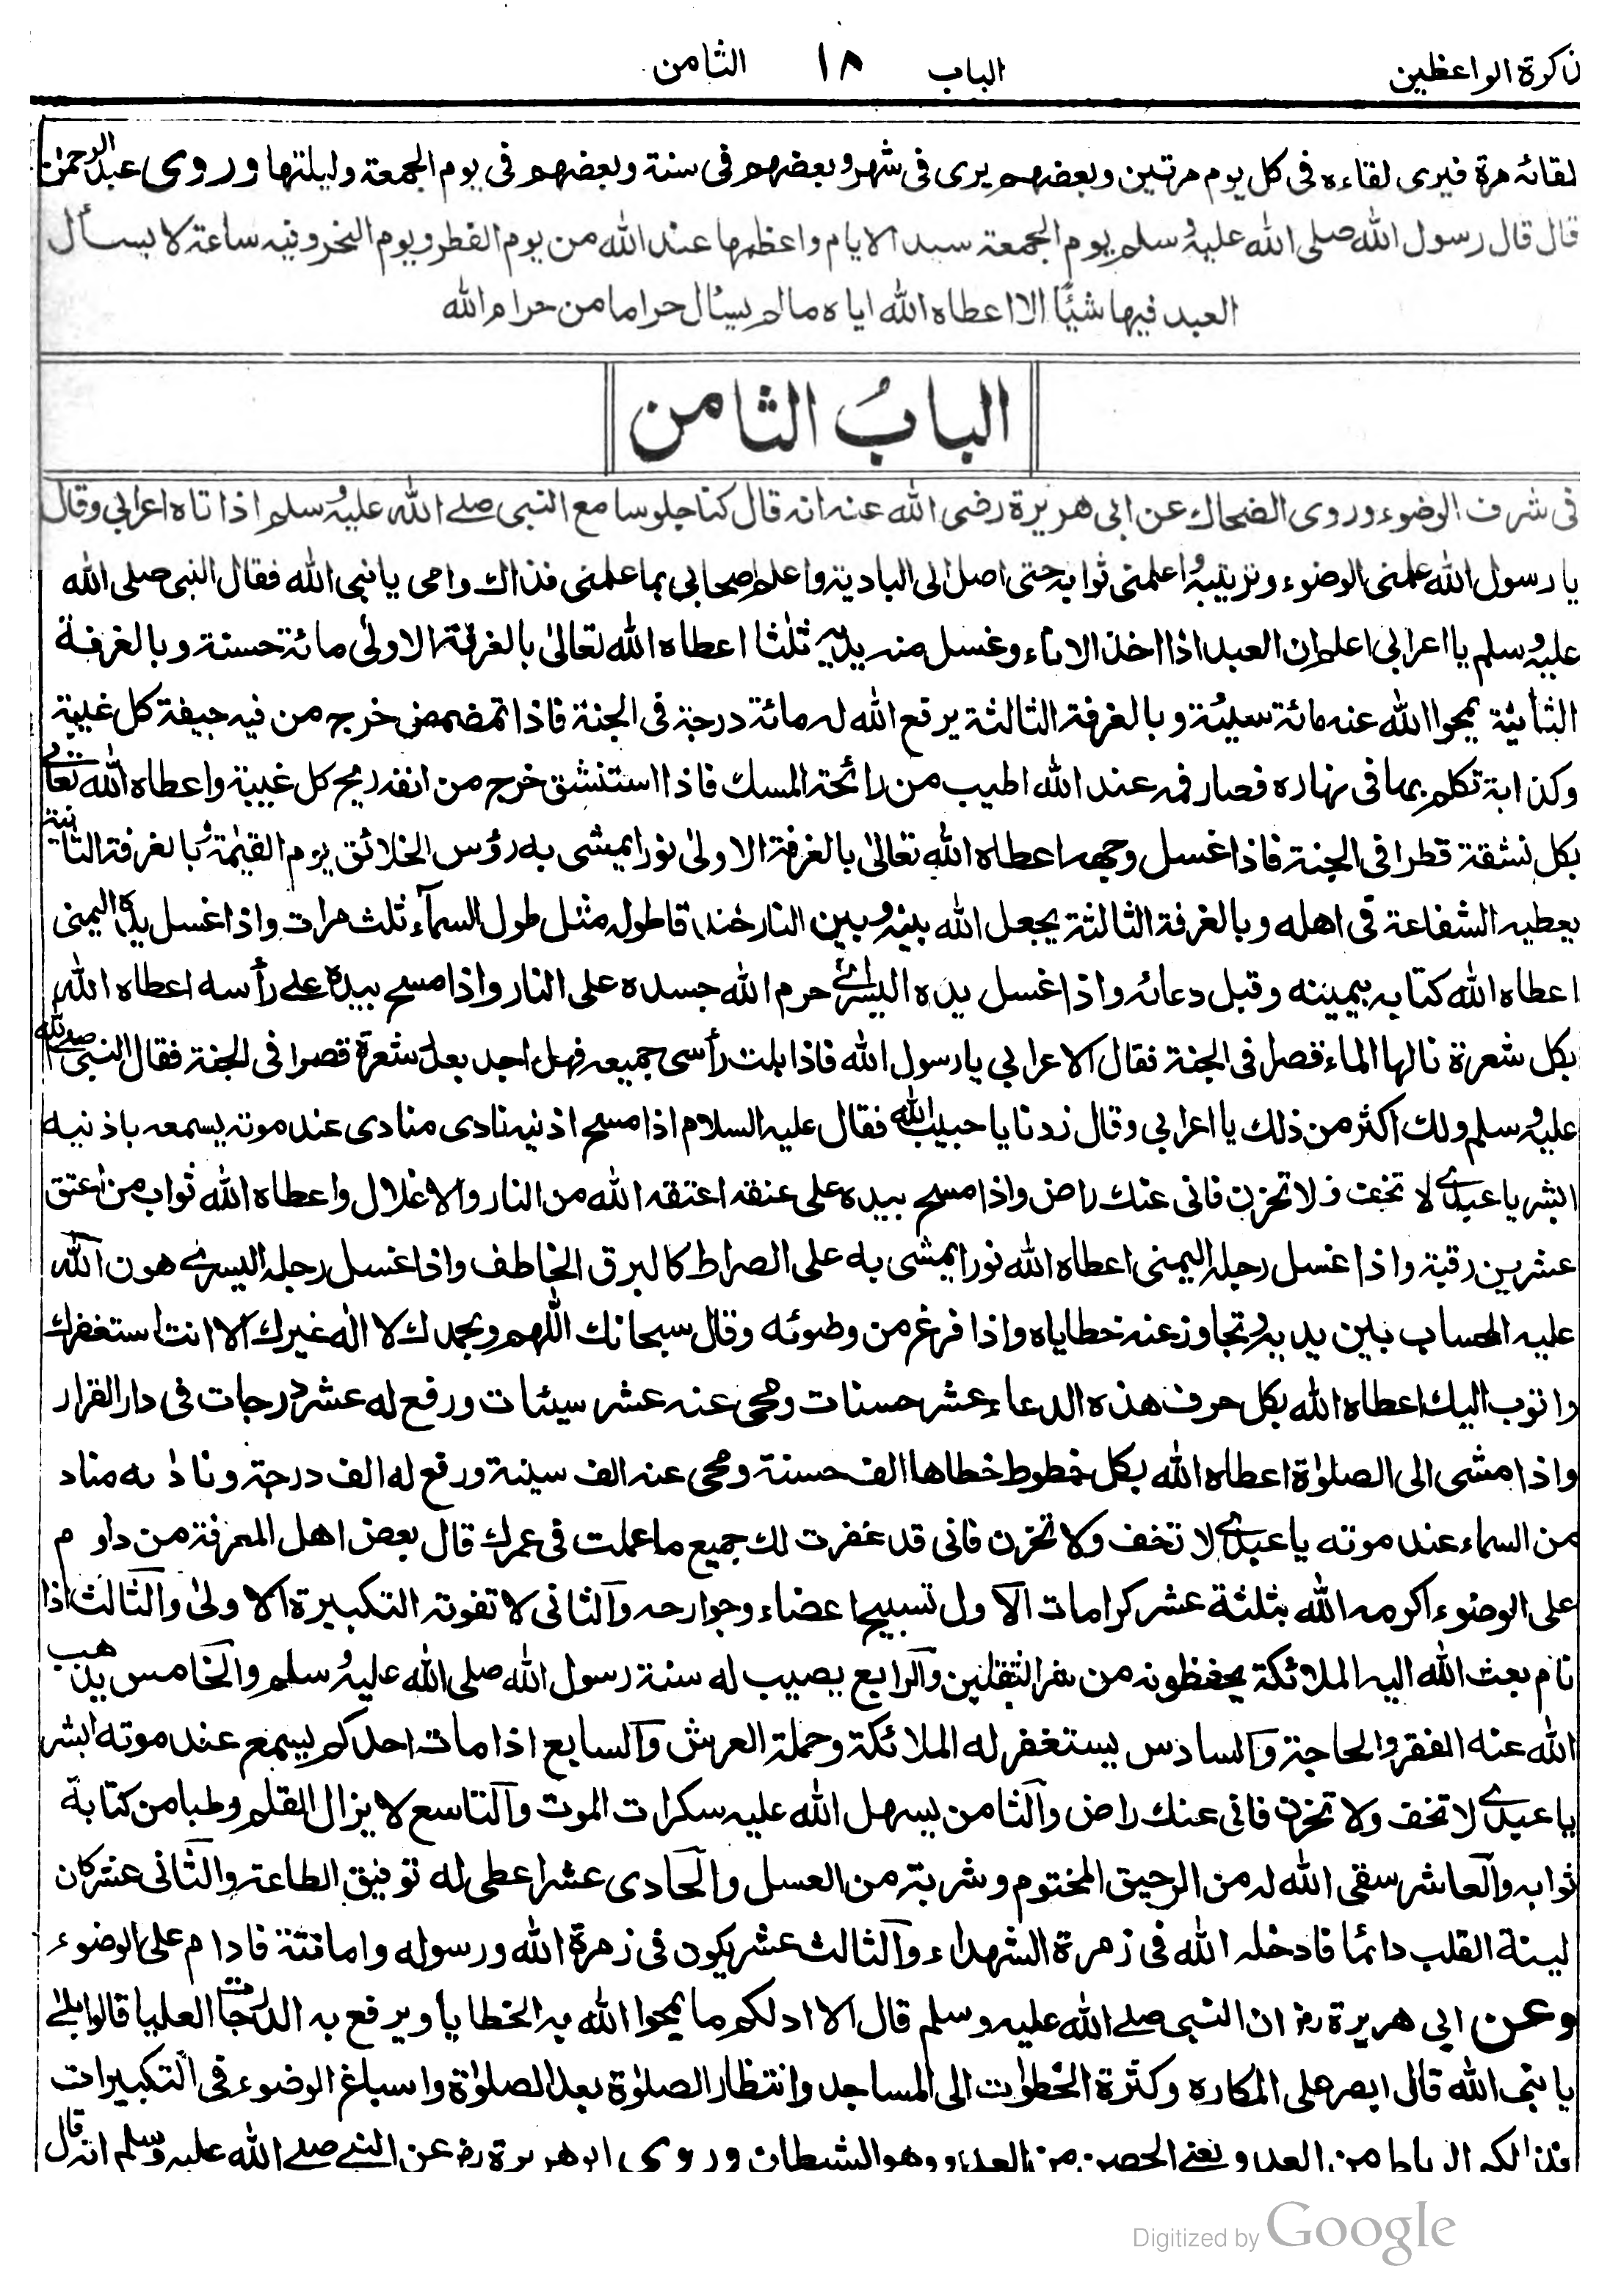 ذكرة الواعظين الباب ١٨ الثامن
لقائه مرة فيرى لقاءه فى كل يوم مرتين وبعضهم يرى فى شهر وبعضهم فى سنة وبعضهم فى يوم الجمعة وليلتها وروى عبد الرحمن
قال قال رسول الله صلى الله عليه وسلم يوم الجمعة سيد الايام واعظمها عند الله من يوم الفطر ويوم النحر وفيه ساعة لا يسأل
العبد فيها شيئا الا اعطاه الله اياه مالم يسال حراما من حرام الله
الباب الثامن
فى شرف الوضوء وروى الضحاك عن ابى هريرة رضى الله عنه انه قال كنا جلوسا مع النبى صلے الله عليه وسلم اذا تاه اعرابي وقال
يا رسول الله علمنى الوضوء وترتيبه اعلمنى ثوابه حتى اصل الى البادية واعلم اصحابي بما علمنى فذاك وامى يا نبى الله فقال النبى صلى الله
عليه وسلم يا اعرابي اعلم ان العبد اذا اخذ الاناء وغسل منه يديه ثلثا اعطاه الله تعالى بالغرفة الاولى مائة حسنة وبالغرفة
الثانية يمحوا الله عنه مائة سيئة وبالغرفة الثالثة يرفع الله له مائة درجة فى الجنة فاذا تمضمض خرج من فيه جيفة كل غيبة
وكذابة تكلم بها فى نهاره فصار فمه عند الله اطيب من رائحة المسك فاذا استنشق خرج من انفه ريح كل غيبة واعطاه الله تعالے
بكل نشقة قطرا فى الجنة فاذا غسل وجهه اعطاه الله تعالى بالغرفة الاولى نورا يمشى به رؤس الخلائق يوم القيمة وبالغرفة الثانية
يعطيه الشفاعة فى اهله وبالغرفة الثالثة يجعل الله بينه وبين النار خندقا طوله مثل طول السمآء ثلث مرات واذا غسل يده اليمنى
اعطاه الله كتابه بيمينه وقبل دعائه واذا غسل يده اليسرے حرم الله جسده على النار واذا مسح بيده علے رأسه اعطاه الله
بكل شعرة نالها الماء قصرا فى الجنة فقال الاعرابي يا رسول الله فاذا بلت رأسى جميعه فهل اجد بعد شعرة قصرا فى الجنة فقال النبى صلے الله
عليه وسلم ولك اكثر من ذلك يا اعرابي وقال زدنا يا حبيب الله فقال عليه السلام اذا مسح اذنيه نادى منادى عند موته يسمعه باذنيه
ابشر يا عبدے لا تخف ولا تحزن فانى عنك راض واذا مسح بيده على عنقه اعتقه الله من النار والاغلال واعطاه الله ثواب من اعتق
عشرين رقبة واذا غسل رجله اليمنى اعطاه الله نورا يمشى به على الصراط كالبرق الخاطف واذا غسل رجله اليسرے هون الله
عليه الحساب بين يديه وتجاوز عنه خطاياه واذا فرغ من وضوئه وقال سبحانك اللهم وبحمدك لا اله غيرك الا انت استغفرك
واتوب اليك اعطاه الله بكل حرف هذه الدعاء عشر حسنات ومحى عنه عشر سيئات ورفع له عشر درجات فى دار القرار
واذا مشى الى الصلوٰة اعطاه الله بكل خطوط خطاها الف حسنة ومحى عنه الف سيئة ورفع له الف درجة وناد به مناد
من السماء عند موته يا عبدے لا تخف ولا تحزن فانى قد غفرت لك جميع ما عملت فى عمرك قال بعض اهل المعرفة من داوم
على الوضوء اكرمه الله بثلثة عشر كرامات الآول تسبيح اعضاء وجوارحه والثانى لا تفوته التكبيرة الاولى والثالث اذا
نام بعث الله اليه الملائكة يحفظونه من شر الثقلين والرابع يصيب له سنة رسول الله صلى الله عليه وسلم والخامس يذهب
الله عنه الفقر والحاجة والسادس يستغفر له الملائكة وحملة العرش والسابع اذا مات احدكم يسمع عند موته ابشر
يا عبدے لا تخف ولا تحزن فانى عنك راض والثامن يسهل الله عليه سكرات الموت والتاسع لا يزال القلم رطبا من كتابة
ثوابه والعاشر سقى الله له من الرحيق المختوم وشربة من العسل والحادى عشر اعطى له توفيق الطاعة والثانى عشر كان
لينة القلب دائما فادخله الله فى زمرة الشهداء والثالث عشر يكون فى زمرة الله ورسوله وامانته فادام على الوضوء
وعن ابي هريرة رض ان النبى صلے الله عليه وسلم قال الا ادلكم ما يمحوا الله به الخطايا ويرفع به الدرجات العليا قالوا بلے
يا نبى الله قال اصبر على المكاره وكثرة الخطوات الى المساجد وانتظار الصلوٰة بعد الصلوٰة واسباغ الوضوء فى التكبيرات
فذالكم الرباط من العدو يعنى الحصين من العدو وهو الشيطان وروى ابو هريرة رض عن النبى صلے الله عليه وسلم انه قال
Digitized by Google